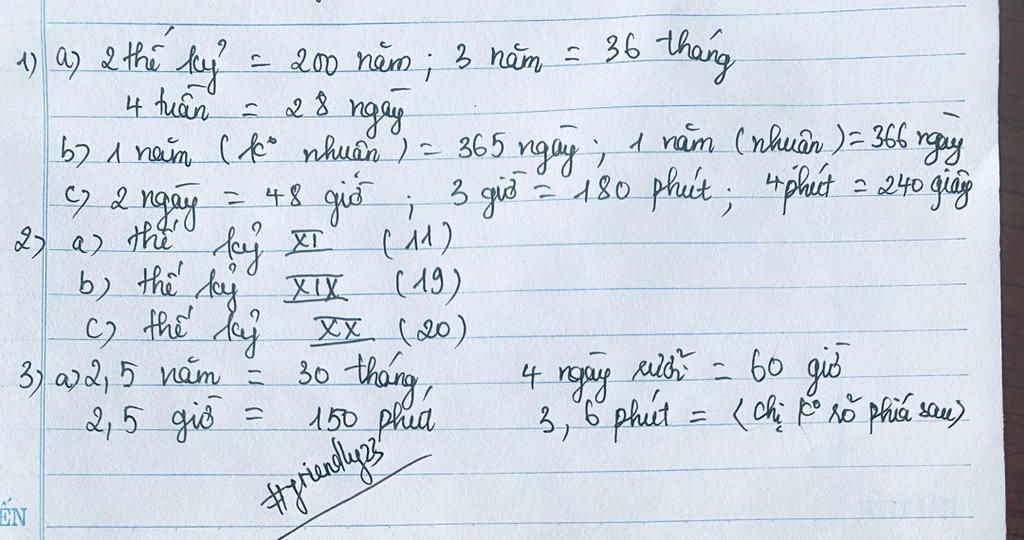 1) a) 2 thế kỷ = 200 năm ; 3 năm = 36 tháng
4 tuần = 28 ngày
b) 1 năm ( k° nhuân ) = 365 ngày ; 1 năm (nhuân) = 366 ngày
c) 2 ngày = 48 giờ ; 3 giờ = 180 phút ; 4 phút = 240 giây
2) a) thế kỷ XI (11)
b) thế kỷ XIX (19)
c) thế kỷ XX (20)
3) a) 2,5 năm = 30 tháng, 4 ngày rưỡi = 60 giờ
2,5 giờ = 150 phút 3,6 phút = (chị k° rõ phía sau)
#friendly23
ẾN